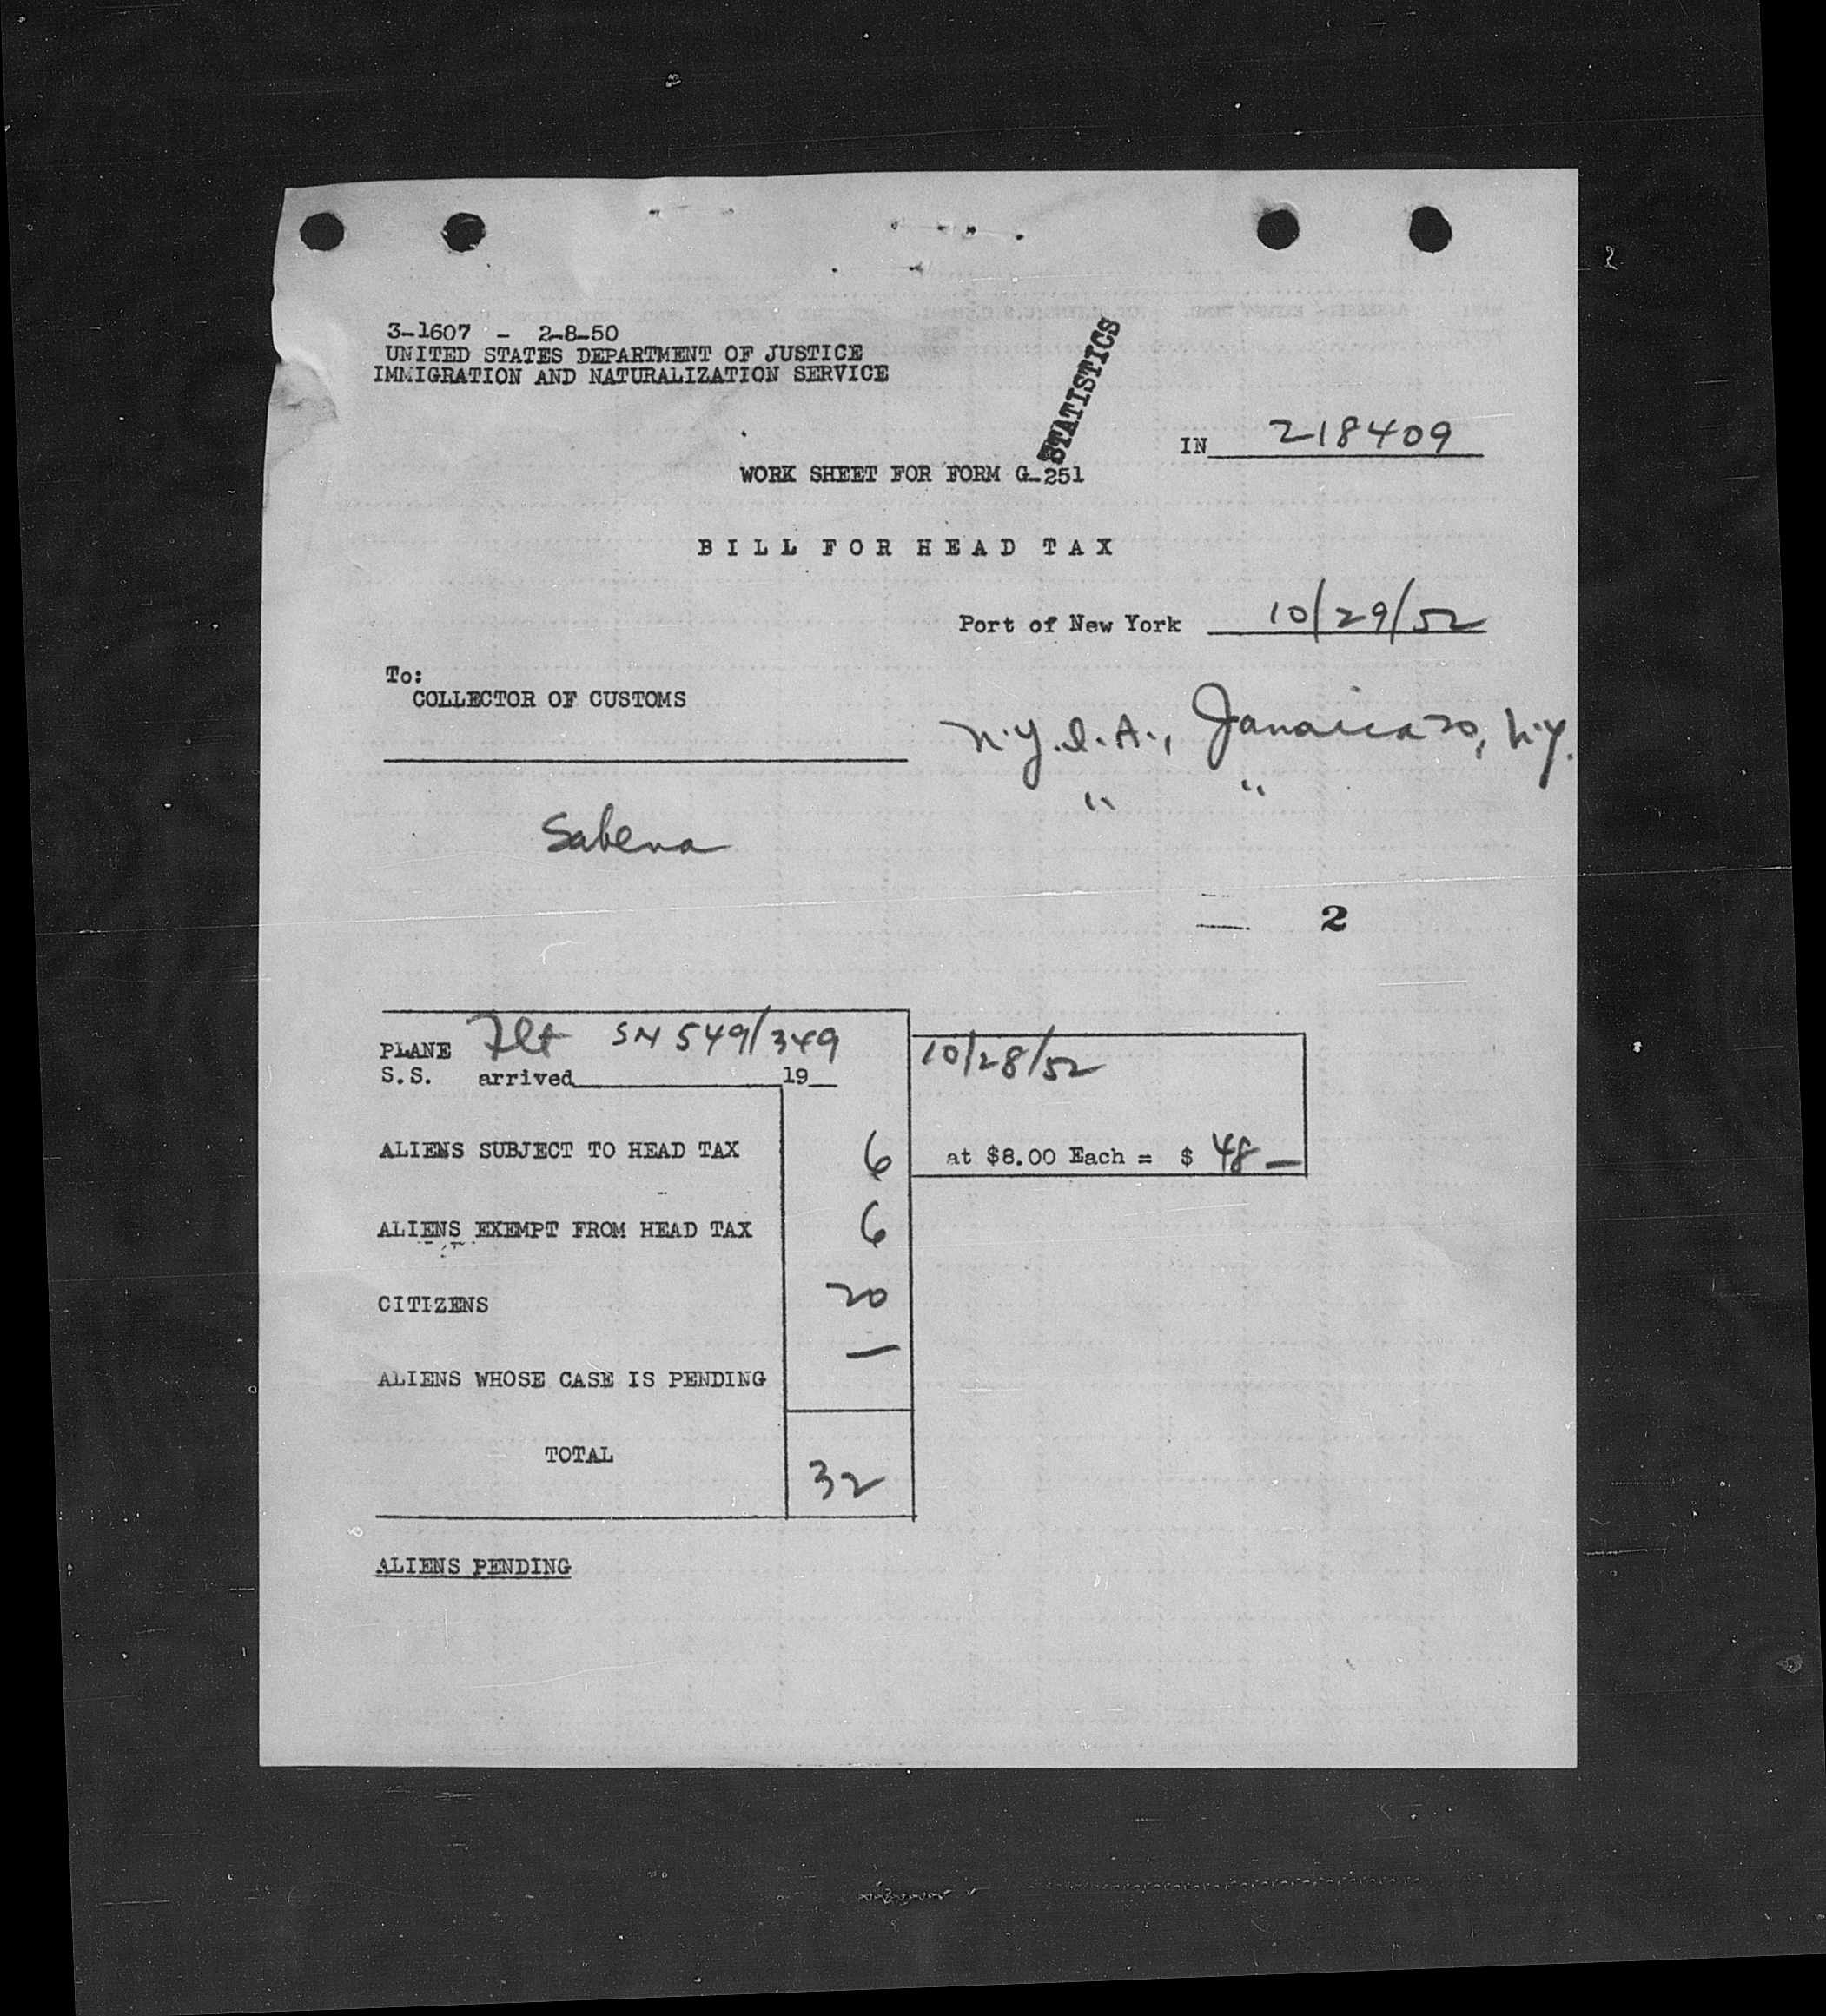 3-1607 - 2-8-50
UNITED STATES DEPARTMENT OF JUSTICE
IMMIGRATION AND NATURALIZATION SERVICE
STATISTICS
IN 218409
WORK SHEET FOR FORM G-251
BILL FOR HEAD TAX
Port of New York 10/29/52
To:
COLLECTOR OF CUSTOMS
N.Y.I.A., Jamaica 30, N.Y.
" "
Sabena
2
PLANE Flt SN 549/349
S.S. arrived 19
10/28/52
ALIENS SUBJECT TO HEAD TAX 6 at $8.00 Each = $ 48 —
ALIENS EXEMPT FROM HEAD TAX 6
CITIZENS 20
ALIENS WHOSE CASE IS PENDING —
TOTAL 32
ALIENS PENDING